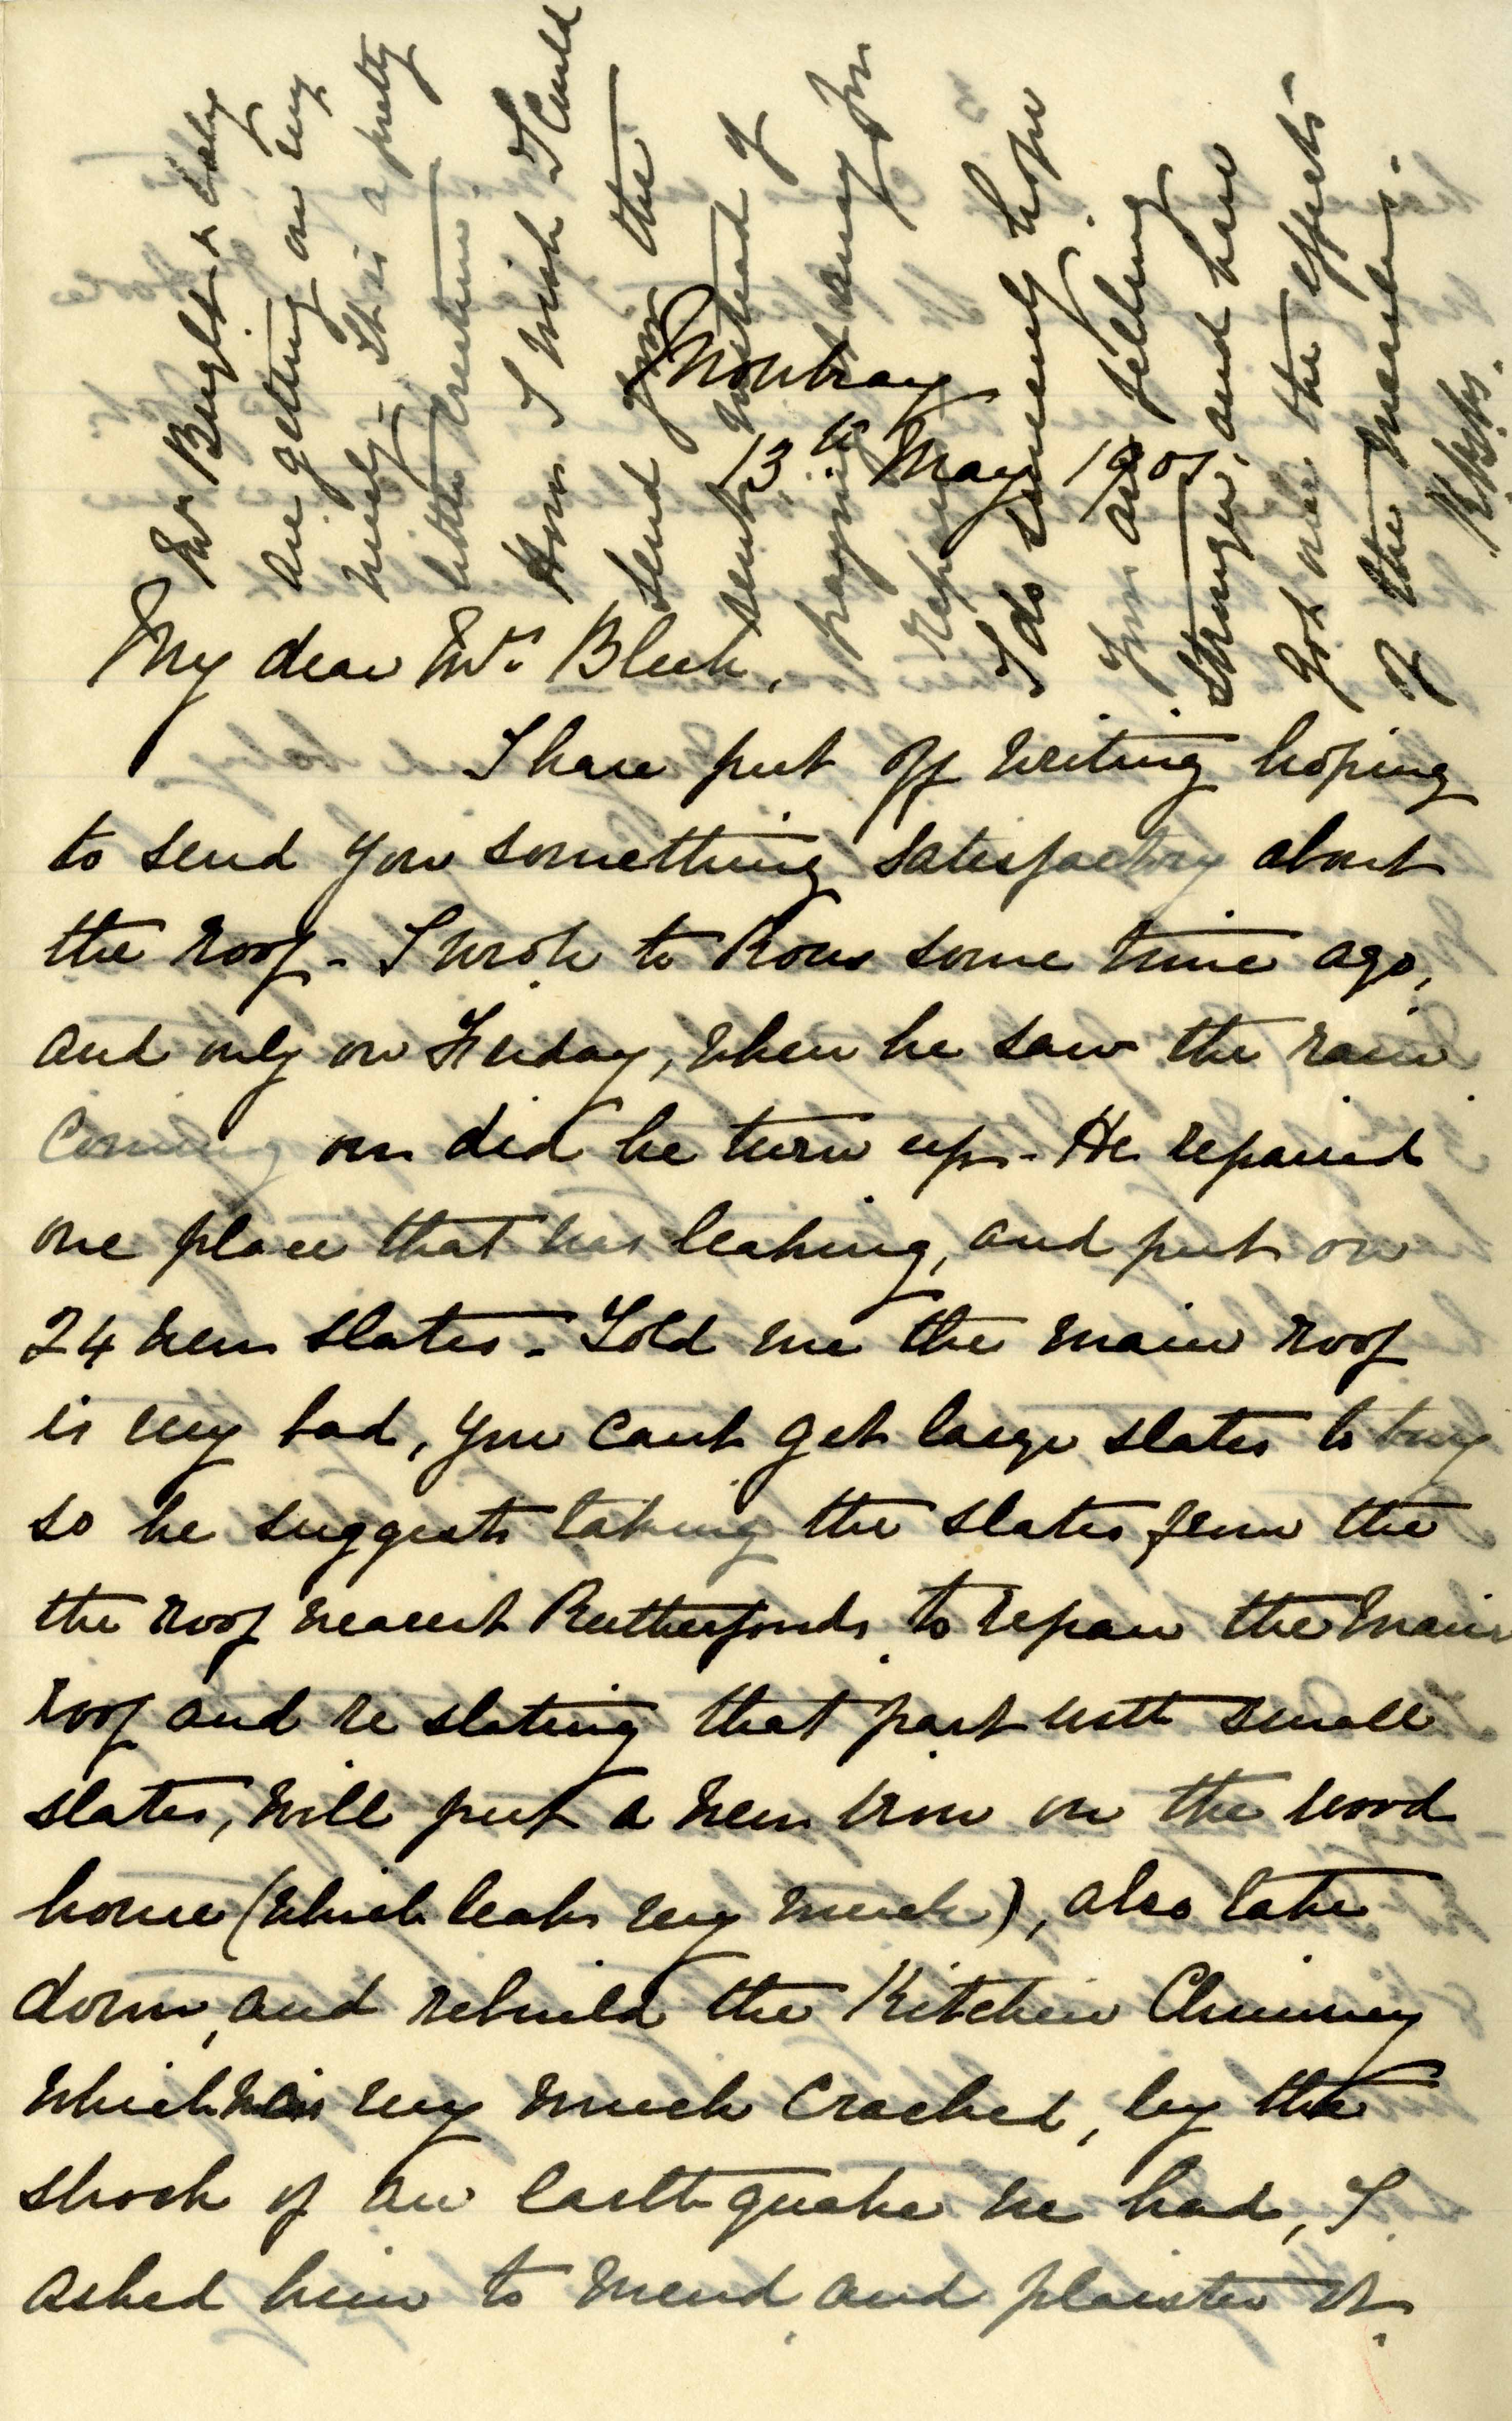 Mowbray
13th May 1901.
My dear Mrs Bleek,
I have put off writing hoping
to send you something satisfactory about
the roof - I wrote to Rows some time ago,
and only on Friday, when he saw the rain
coming on did he turn up - He repaired
one place that was leaking, and put on
24 new slates - Told me the main roof
is very bad, you cant get large slates to buy
so he suggests taking the slates from the
the roof nearest Rutherfords to repair the main
roof and re slating that part with small
slates, will put a new iron on the wood
house (which leaks very much), also take
down, and rebuild the Kitchen Chimney
which was very much cracked, by the
shock of an earthquake we had, I
asked him to mend and plaister it.
Mrs Bright & baby
are getting on very
nicely - It is a pretty
little creature.
How I wish I could
send you the
rent instead of
paying it away for
repairs
I do sincerely hope
you are feeling
stronger, and have
got over the effects
of the measles.